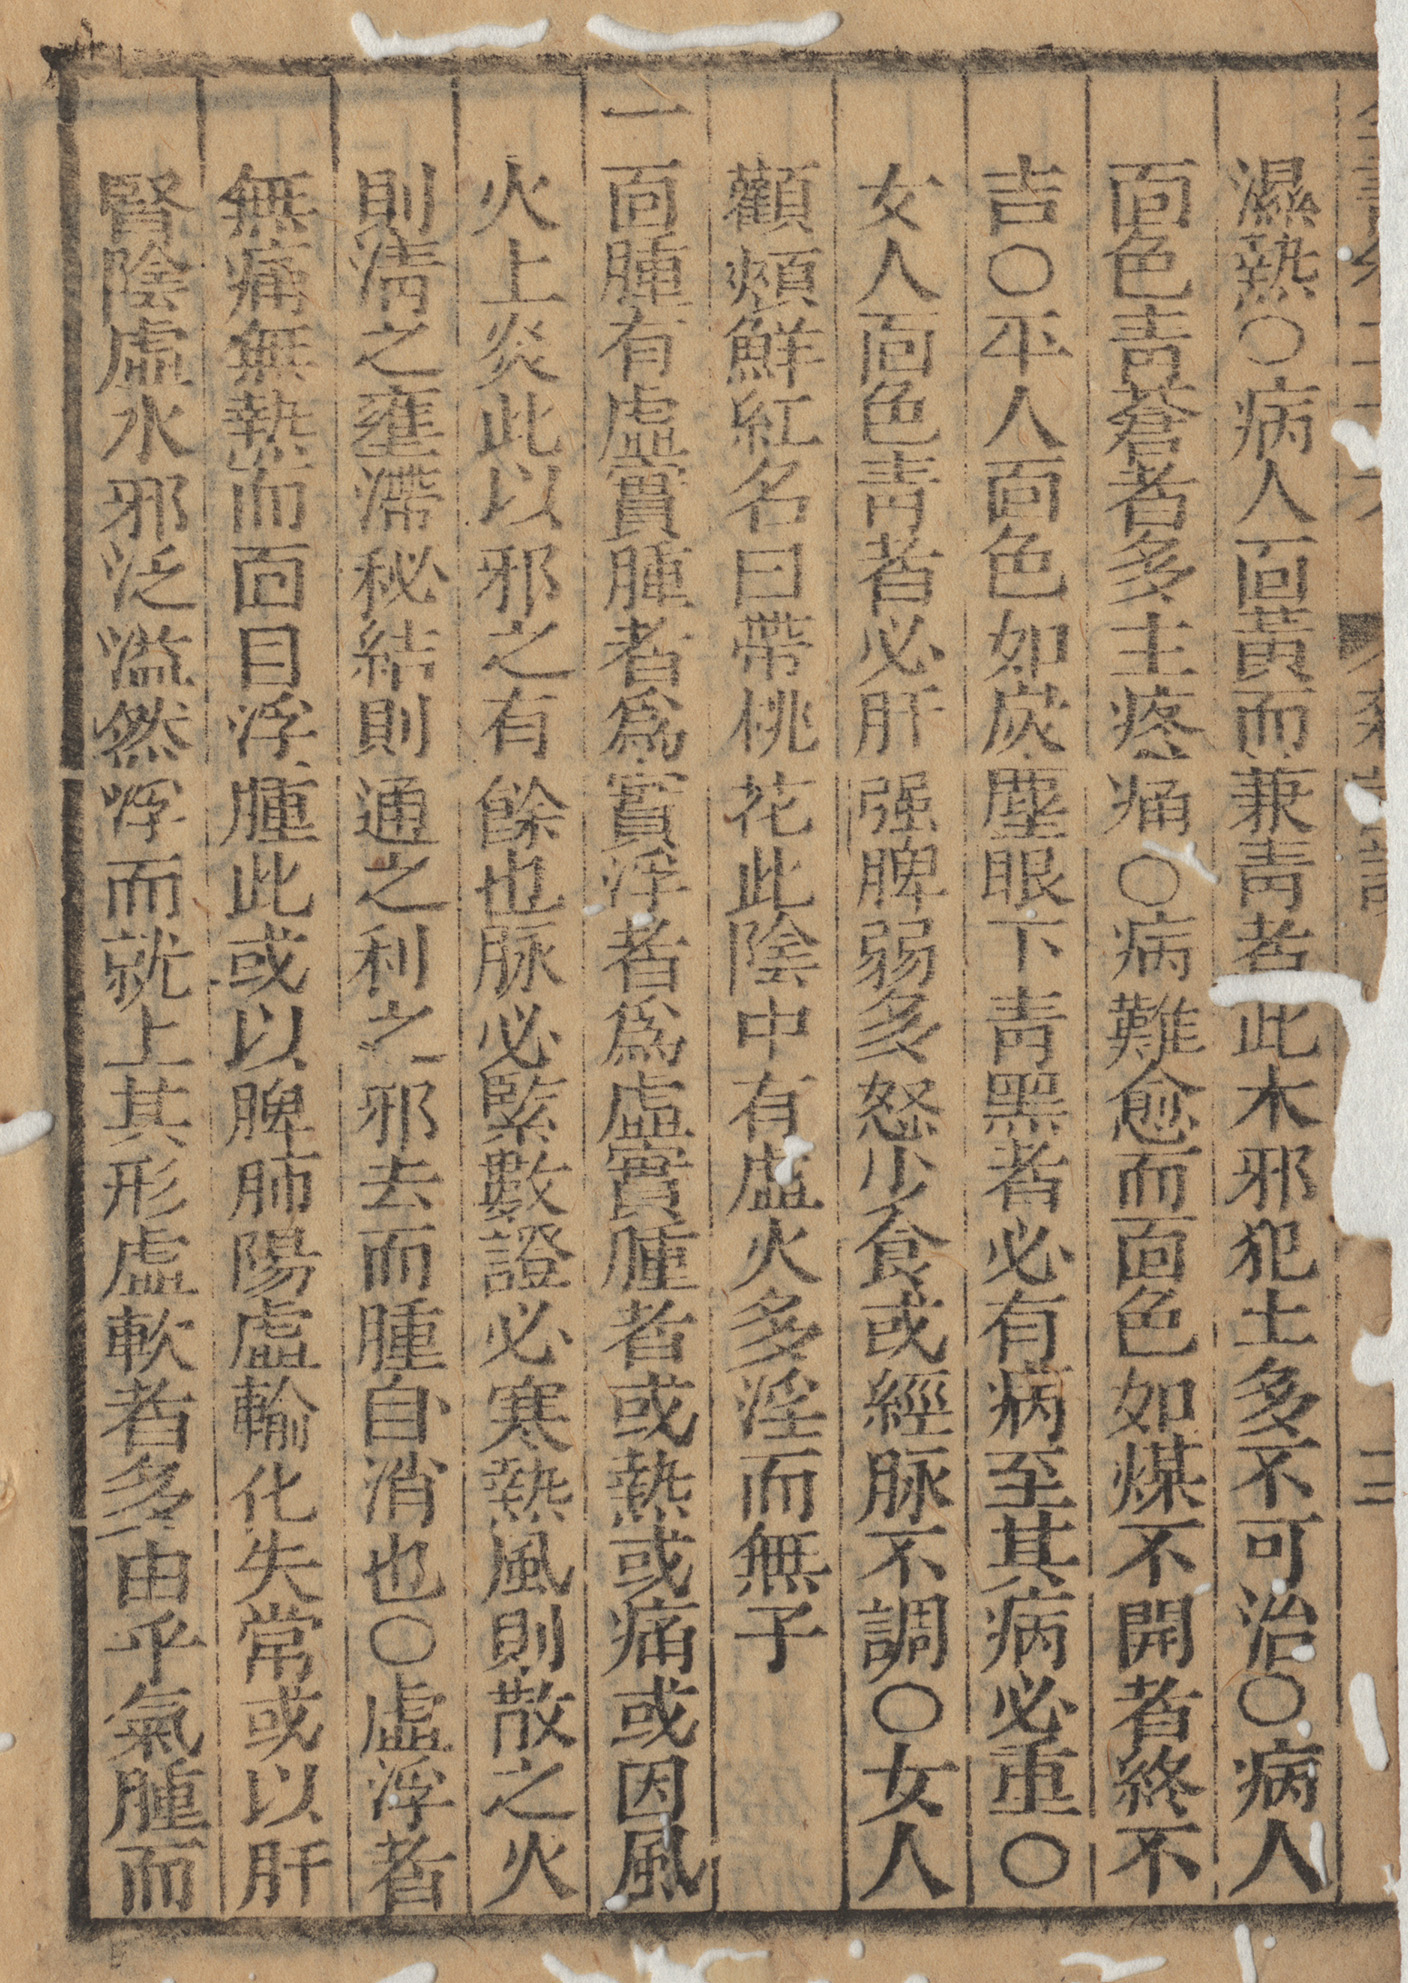 濕熱〇病人面黃而兼青者此木邪犯土多不可治〇病人
面色青蒼者多主疼痛〇病難愈而面色如煤不開者終不
吉〇平人面色如炭塵眼下青黑者必有病至其病必重〇
女人面色青者必肝强脾弱多怒少食或經脉不調〇女人
顴頰鮮紅名曰帶桃花此陰中有虛火多淫而無子
一面腫有虛實腫者爲實浮者爲虛實腫者或熱或痛或因風
火上炎此以邪之有餘也脉必緊數證必寒熱風則散之火
則淸之壅滯秘結則通之利之邪去而腫自消也〇虛浮者
無痛無熱而面目浮腫此或以脾肺陽虛輸化失常或以肝
腎陰虛水邪泛溢然浮而就上其形虛軟者多由乎氣腫而